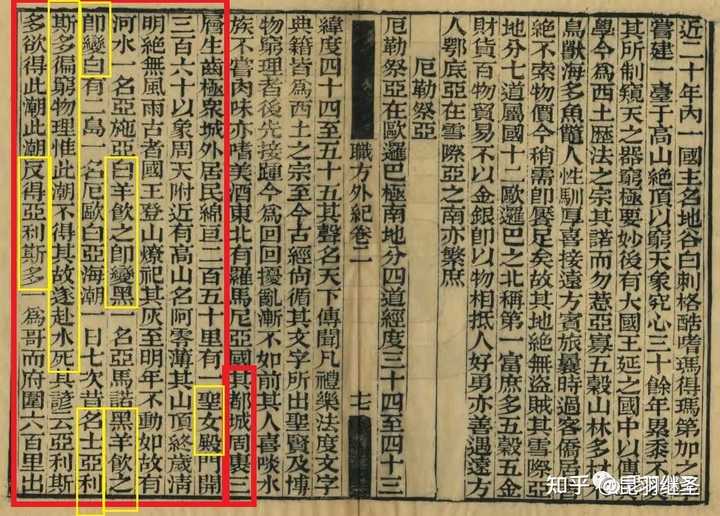 近二十年內一國主名地谷白剌格酷嗜瑪得瑪第加之
嘗建一臺于高山絕頂以窮天象究心三十餘年累黍不
其所制窺天之器窮極要妙後有大國王延之國中以傳
學今爲西土歴法之宗其諾而勿惹亞寡五穀山林多材
鳥獸海多魚鱉人性馴厚喜接遠方賓旅曩時過客僑居
絕不索物價今稍需卽饜足矣故其地絕無盜賊其雪際亞
地分七道屬國十二歐邏巴之北稱第一富庶多五穀五金
財貨百物貿易不以金銀卽以物相抵人好勇亦善遇遠方
人鄂底亞在雪際亞之南亦繁庶
厄勒祭亞
厄勒祭亞在歐邏巴極南地分四道經度三十四至四十三
職方外紀卷二 十七
緯度四十四至五十五其聲名天下傳聞凡禮樂法度文字
典籍皆爲西土之宗至今古經尚循其文字所出聖賢及博
物窮理者後先接踵今爲回回擾亂漸不如前其人喜啖水
族不嘗肉味亦嗜美酒東北有羅馬尼亞國其都城周裹三
層生齒極衆城外居民綿亘二百五十里有一聖女殿門開
三百六十以象周天附近有高山名阿零薄其山頂終歲清
明絕無風雨古者國王登山燎祀其灰至明年不動如故有
河水一名亞施亞白羊飲之卽變黑一名亞馬諾黑羊飲之
卽變白有二島一名厄歐白亞海潮一日七次昔名士亞利
斯多徧窮物理惟此潮不得其故遂赴水死其諺云亞利斯
多欲得此潮此潮反得亞利斯多一爲哥而府圍六百里出
知乎 @昆羽继圣